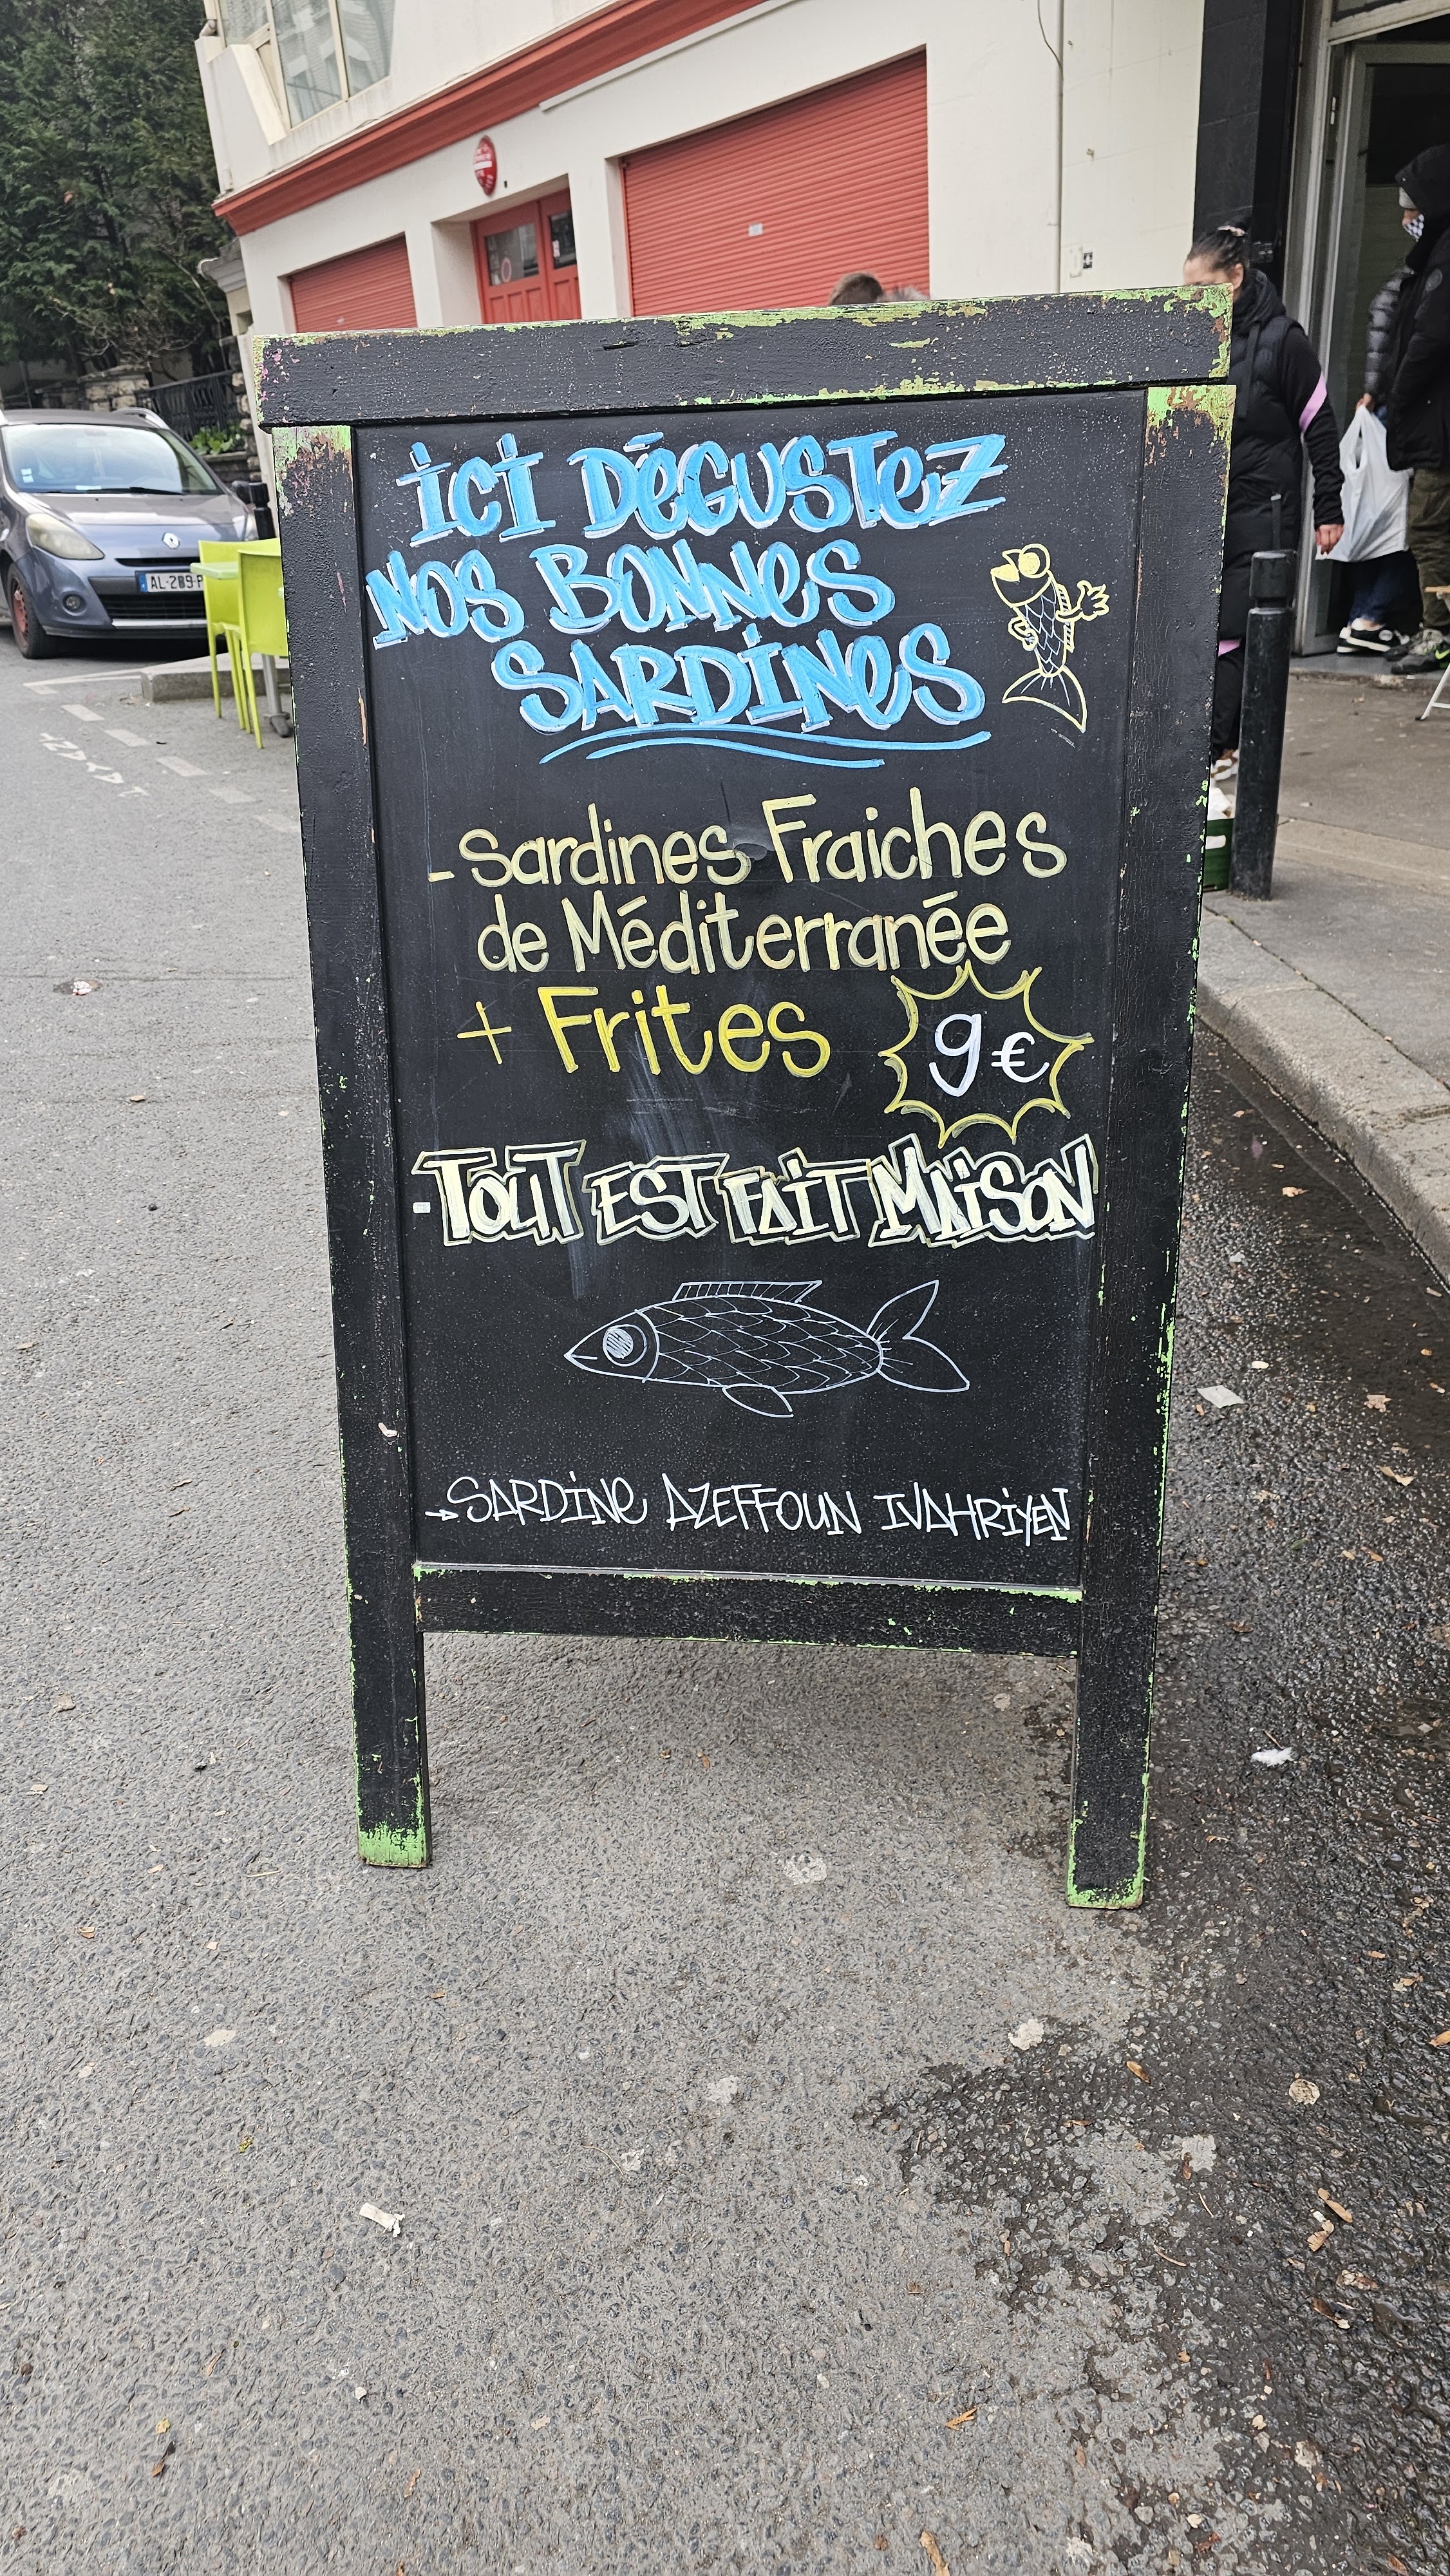 iCi DéGUSTeZ
NOS BONNeS
SARDiNeS
- Sardines Fraiches
de Méditerranée
+ Frites 9€
TOUT EST FAiT MAiSON
→ SARDiNe AZEFFOUN IVAHRiYEN
AL-289-P